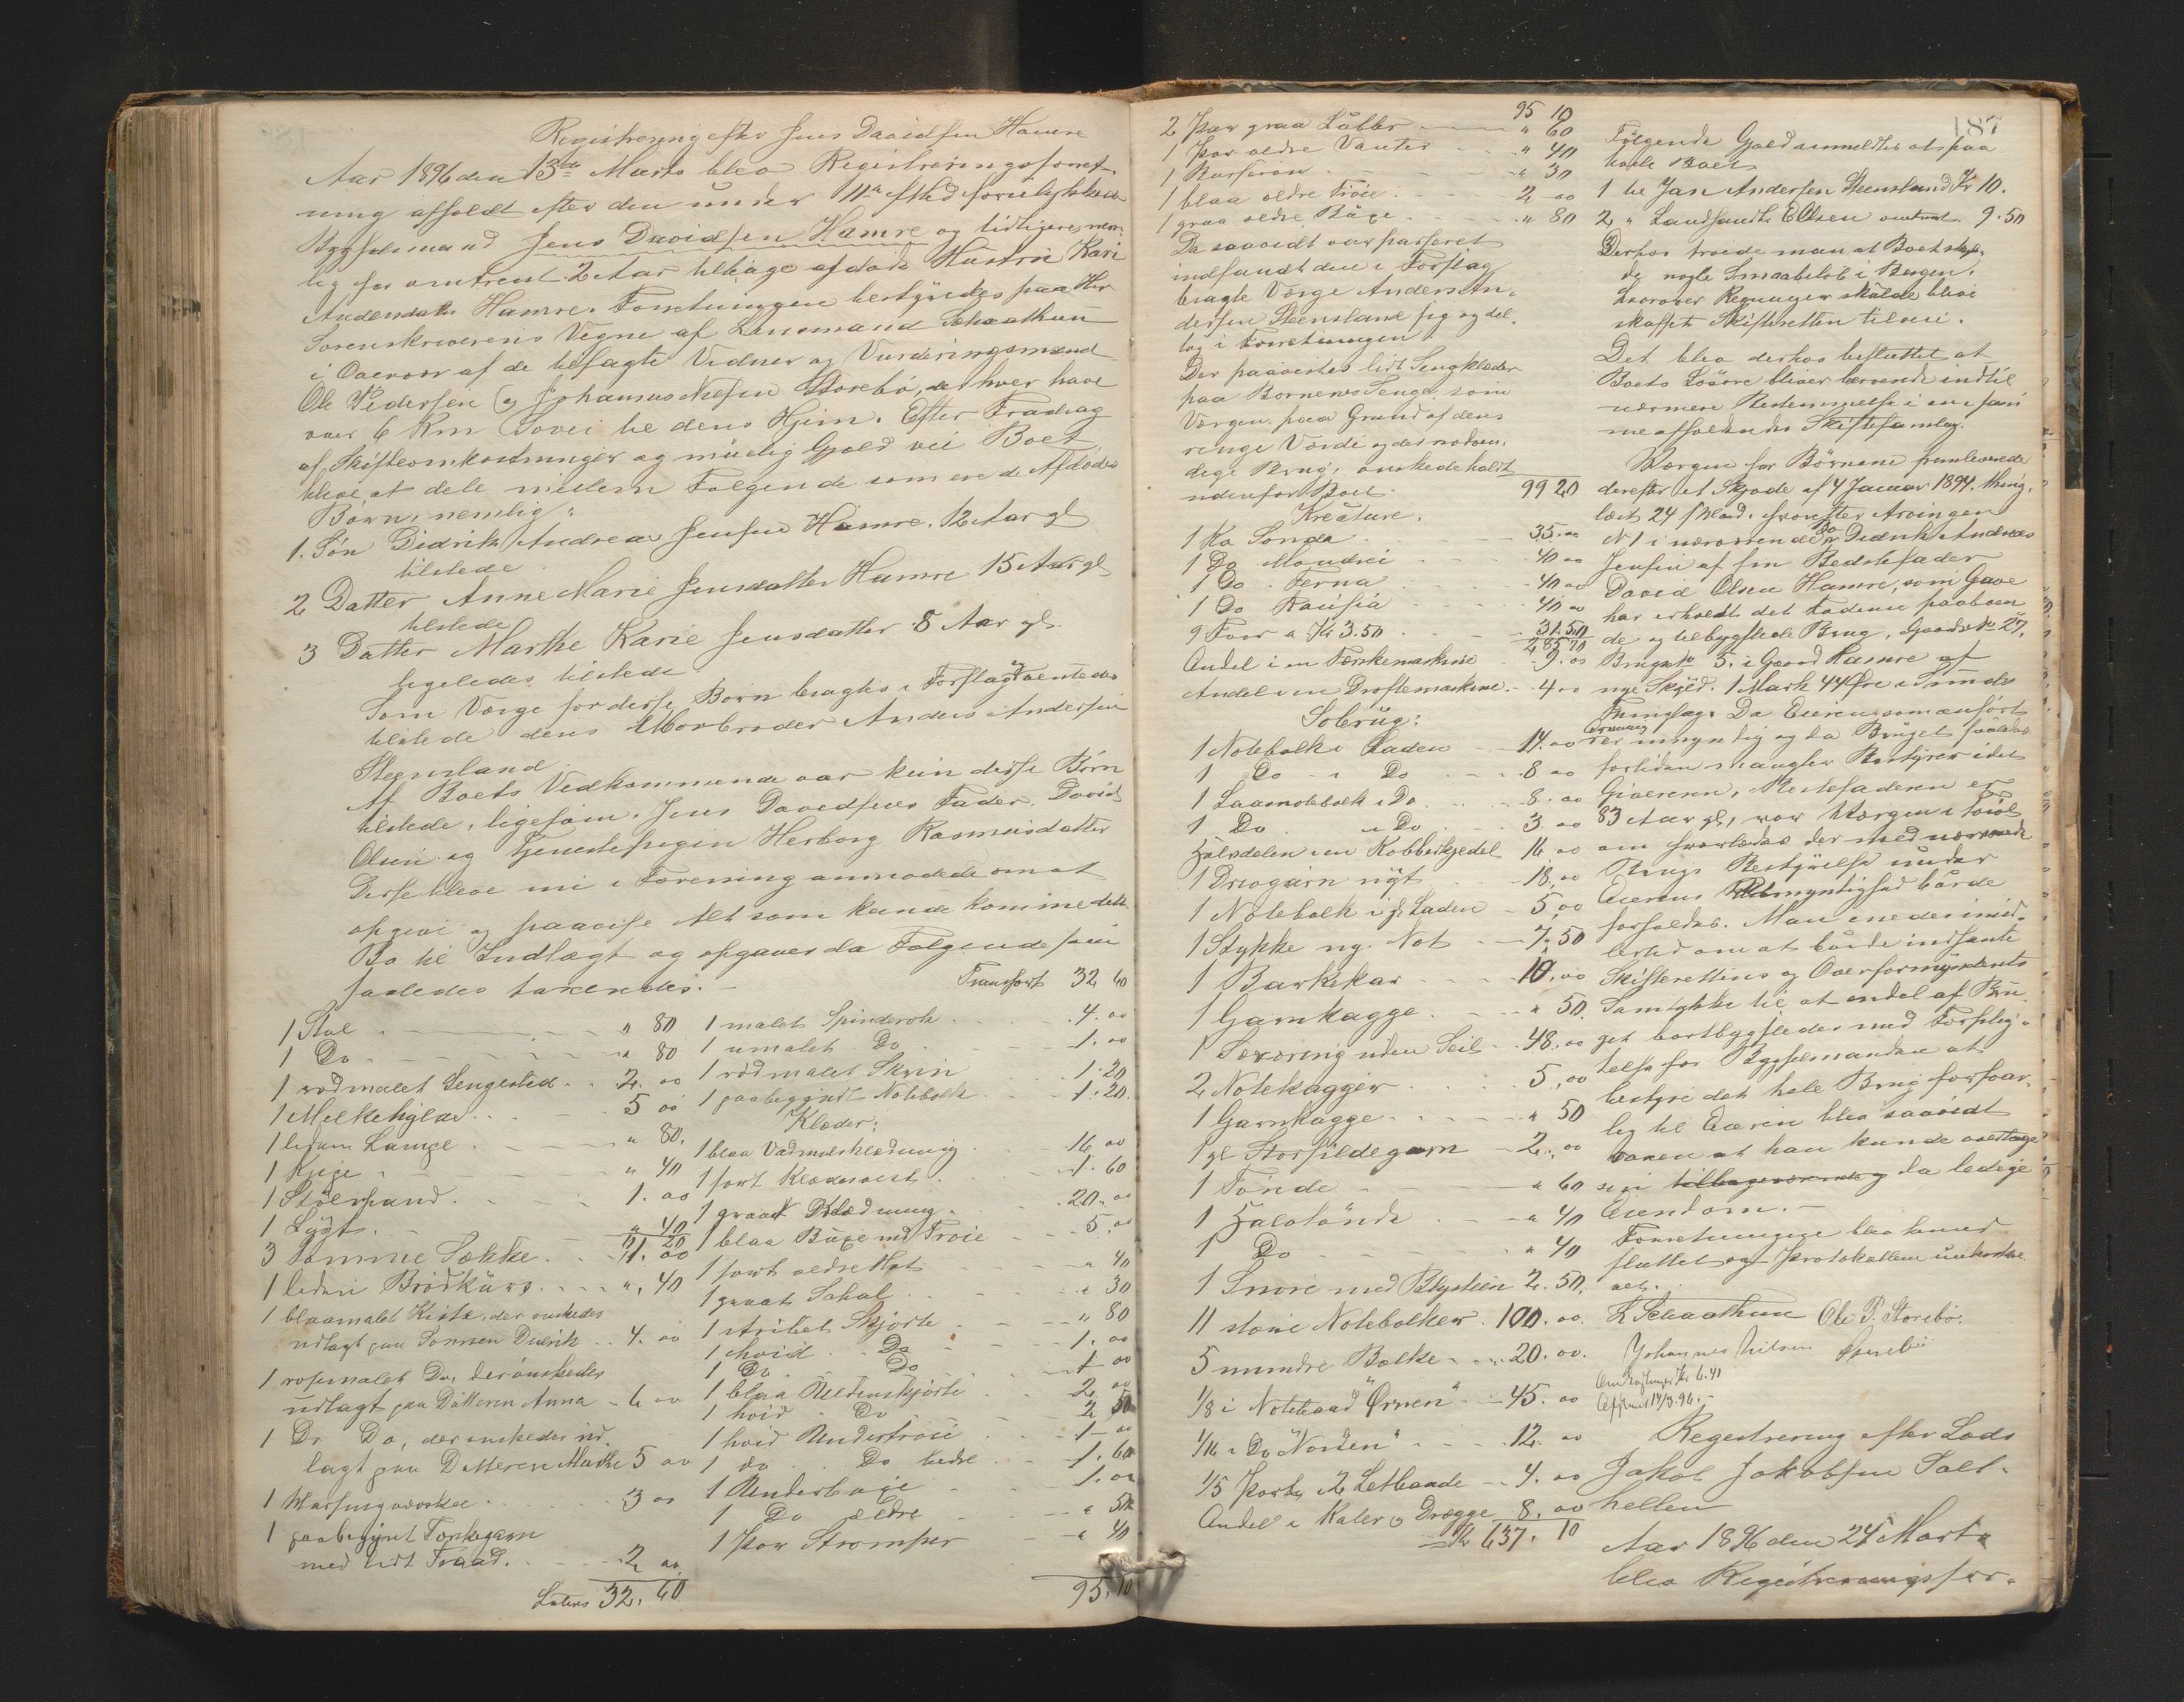 Registrering efter Jens Davidsen Hamre
Aar 1896 den 13de Marts blev Registreringsforret-
ning afholdt efter den under 11te
Bygselmand Jens Davidsen Hamre og tidligere nem-
lig for omtrent 2 Aar tilbage afdøde Hustru Kari
Andersdatr Hamre. Forretningen bestyredes paa Hr
Sorenskriverens Vegne af Lensmand Schaathun
i Overvær af de tilsagte Vidner og Vurderingsmænd
Ole Pedersen og Johannes Nilsen Storebø, der hver have
over 6 Km Sovei til deres Hjem. Efter Fradrag
af Skifteomkostninger og mulig Gjæld vil Boet
blive at dele mellem Følgende som ere de Afdødes
Børn, nemlig:
1. Søn Didrik Andreas Jensen Hamre. 12 Aar gl
tilstede
2 Datter Anne Marie Jensdatter Hamre 15 Aar gl.
tilstede
3 Datter Marthe Karie Jensdatter 8 Aar gl.
ligeledes tilstede
Som Værge for disse Børn bragtes i Forslag og ventedes
tilstede deres Morbroder Anders Andersen
Steensland.
Af Boets Vedkommende var kun disse Børn
tilstede, ligesom Jens Davidsens Fader, David
Olsen og Tjenestepigen Herborg Rasmusdatter
Disse bleve nu i Forening anmodede om at
opgive og paavise Alt som kunde komme dette
Bo til Indtægt og opgaves da Følgende som
saaledes taxeredes:
1 Stol " 80
1 Do " 80
1 rødmalet Sengested 2. 00
1 Melkehylde 5 00
1 liden Lampe " 80.
1 Krye " 40
1 Stølspand 1. 00
1 Lygt " 40
11 20
3 tomme Sække 1. 00
1 liden Brødkurv " 40
1 blaamalet Kiste, der ønskedes
udlagt paa Sønnen Didrik 4. 00
1 rosemalet Do, der ønskedes
udlagt paa Datteren Anna 6 00
1 Do Do, der ønskedes ud-
lagt paa Datteren Marthe 5 00
1 3 00
1 paabegynt Torskegarn
med lidt Traad. 2 00
Lateris 32, 60
Transport 32 60
1 malet Spinderok 4. 00
1 umalet Do 1. 00
1 rødmalet Skrin 1. 20
1 paabegyndt Notebolk 1. 20.
Klæder:
1 blaa Vadmelsklædning 16 00
1 sort Klædesvest 1. 60
1 graat Klædning 20. 00
1 blaa Buxe med Trøie 5. 00
1 sort ældre Hat " 40
1 graat Schal " 30
1 stribet Skjorte " 80
1 hvid Do 1. 00
1 Do Do 1 00
1 blaa Uldenskjorte 2 00
1 hvid Do 2 50
1 hvid Undertrøie 1 00
1 do Do bedre 1. 60
1 Underbuxe 1. 00
1 Do ældre " 50
1 Par Strømper " 40
95. 10
187
95 10
2 Par graa Labber " 60
1 Par ældre Vanter " 40
1 " 30
1 blaa ældre Trøie 2 00
1 graa ældre Buxe " 80
Da saavidt var passeret
indfandt den i Forslag
bragte Værge Anders An-
dersen Steensland sig og del-
tog i Forretningen.
Der paavistes lidt Sengklæder
paa Børnenes Senge, som
Værgen paa Grund af deres
ringe Værdi og det nødven-
dige Brug, ønskede holdt
udenfor Boet.
99 20
Kreature.
1 Ko Sonda 35. 00
1 Do Mondrei 40 00
1 Do Ferna 40 00
1 Do 40 00
9 Foer a Kr 3.50 31. 50
285 70
Andel i en Tærskemaskine 9. 00
Andel i en Drøftemaskine 4 00
Søbrug:
1 Notebolk i Laden 14. 00
1 Do i Do 8 00
1 Laasnotebolk i Do 8. 00
1 Do i Do 3 00
Halvdelen i en Kobberkjedel 16 00
1 Drivgarn nyt 18. 00
1 Notebolk i Laden 5, 00
1 Stykke ny Not 7. 50
1 Barkekar 10. 00
1 Garnkagge " 50.
1 Sexæring uden Seil 48. 00
2 Notekagger 5. 00
1 Garnkagge " 50
1 gl Storsildegarn 2. 00
1 Tønde " 60
1 Halvtønde " 40
1 Do " 40
1 Snøre med Blystein 2. 50.
11 store Notebolker 100. 00.
5 mindre Bolke 20. 00.
1/8 i Notebaad "Ørnen" 45. 00
1/16 i Do "Norden" 12. 00
1/5 Part i 2 Letbaade 4. 00
Andel i Kaler og Drægge 8. 00
Kr 637. 10
Følgende Gjæld anmeldtes at paa
hvile Boet
1 til Jan Andersen Steensland Kr 10.
2 " Landhandl. E Olsen omtrent 9. 50
3 Derhos troede man at Boet skyl-
de nogle Smaabeløb i Bergen.
hvorover Regninger skulde blive
skaffet Skifteretten tilveie.
Det blev derhos besluttet at
Boets Løsøre bliver beroende indtil
nærmere Bestemmelse i en i sam-
me afholdendes Skiftesamling.
Værgen for Børnene fremleverede
derefter et Skjøde af 4 Januar 1894. thing-
læst 24 hvorefter Arvingen
N 1 i nærværende Bo Didrik Andreas
Jensen af sin Bedstefader
David Olsen Hamre, som Gave
har erholdt det Faderen paaboen-
de og tilbygslede Brug, Gaards No 27,
Brugs No 5. i Gaard Hamre af
nye Skyld. 1 Mark 44 Øre i Sunds
Thinglag. Da Eieren som anført
er umyndig og da Bruget saaledes
fortiden mangler Bestyrer idet
Giveren, Bestefaderen er
83 Aar gl, var Værgen i Tvivl
om hvorledes der med nærværende
Brugs Bestyrelse under
Eierens Umyndighed burde
forholdes. Man enedes imid-
lertid om at burde indhente
Skifterettens og Overformynderiets
Samtykke til at endel af Bru-
get bortbygsledes med Forplig-
telse for Bygselmanden at
bestyre det hele Brug forsvar-
lig til Eieren blev saavidt
voxen at han kunde overtage
sin da ledige
Eiendom.-
Forretningen blev hermed
sluttet og Protokollen underskre-
vet.
L Schaathun Ole P. Storebø.
Johannes Nilsen Storebø
Omkostninger Kr 6.41
14/3. 96.
Registrering efter Lods
Jakob Jakobsen Salt-
hellen
Aar 1896 den 24 Marts
blev Registreringsfor-